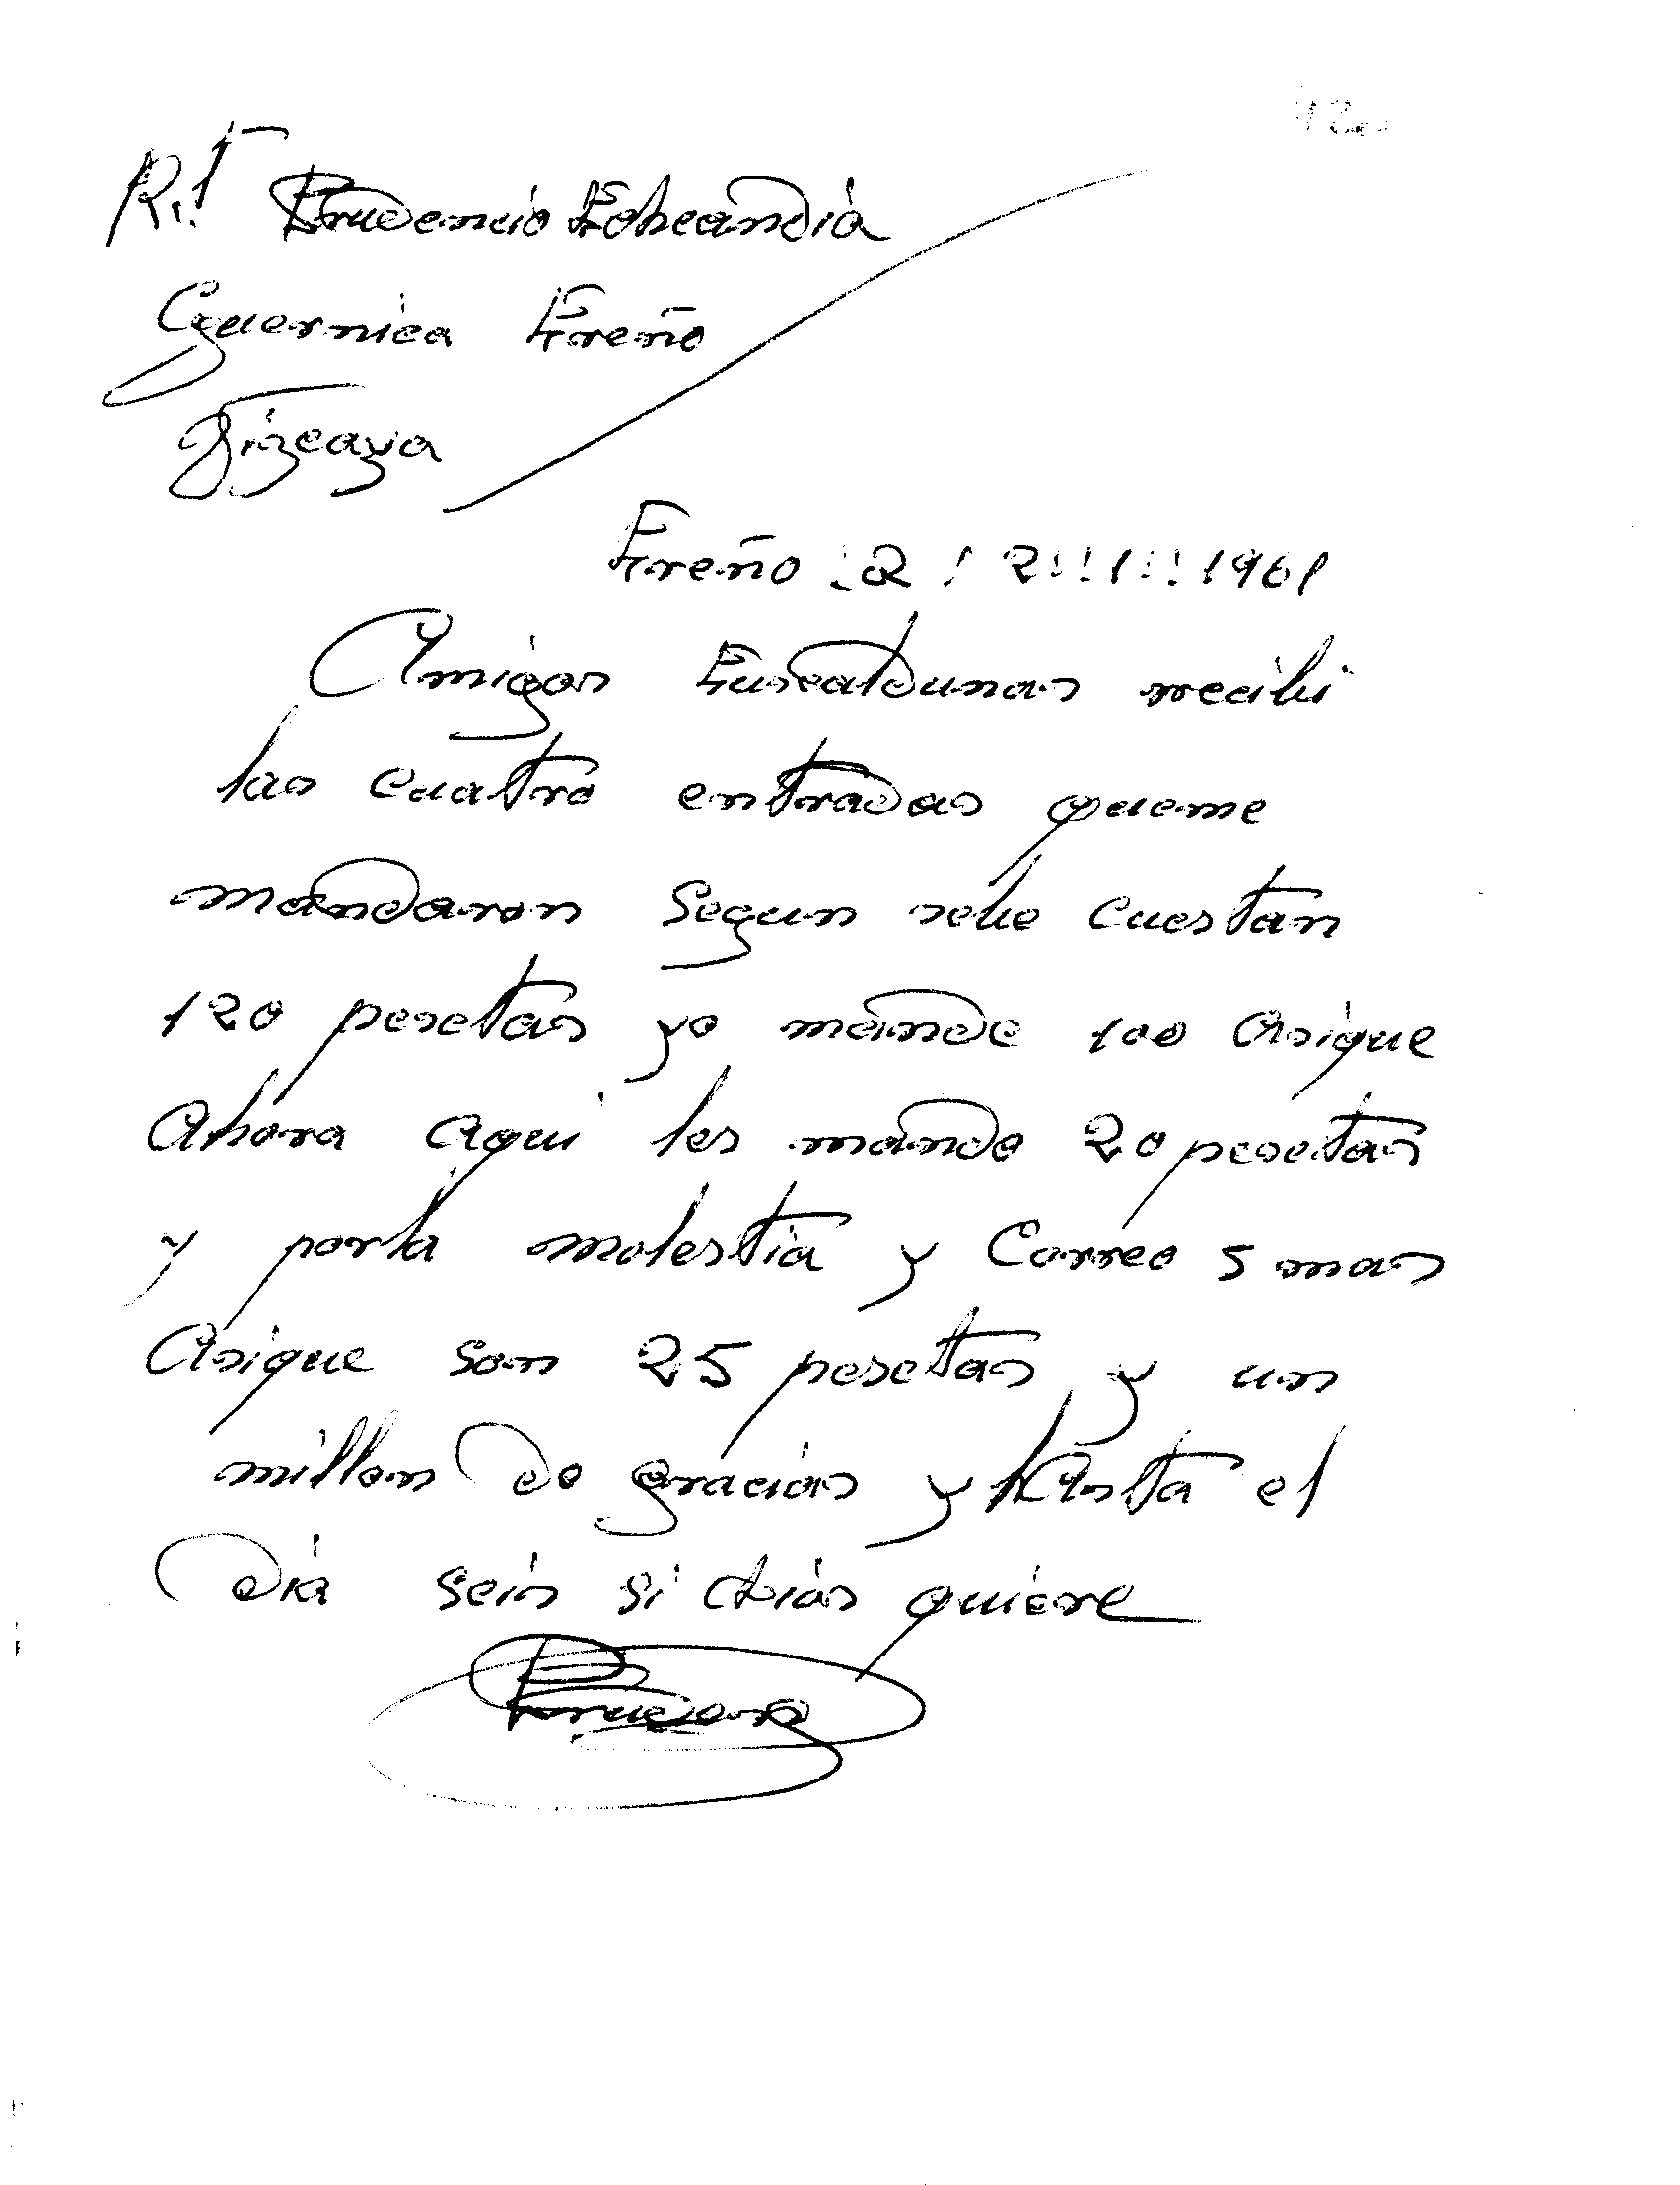 R.t Prudencio Echeandia
Guernica Ereño
Vizcaya
Ereño 2 / 2 : 1 : 1961
Amigos Euscaldunas recibi
las cuatro entradas queme
mandaron Segun sebe cuestan
120 pesetas yo mande 100 Asique
Ahora Aqui les mando 20 pesetas
y porla molestia y Correo 5 mas
Asique son 25 pesetas y un
millon de gracias y hAsta el
dia seis si dios quiere